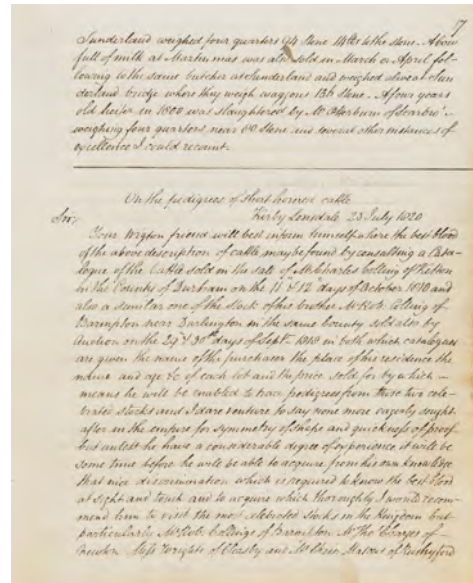 17
Sunderland weighed four quarters 94 Stone 14lbs to the stone. A Cow
full of milk at Martinmas was also sold in March or April fol-
lowing to the same butcher at Sunderland and weighed alive at Sun
derland bridge where they weigh waggons 136 Stone. A four years
old heifer in 1800 was slaughtered by Mr of Scarbro'
weighing four quarters near 60 Stone and several other instances of
excellence I could recount.
On the pedigrees of short horned cattle
Kirby Lonsdale 23 July 1820
Sir,
Your Wigton friend will best inform himself where the best blood
of the above description of cattle may be found by consulting a Cata-
logue of the Cattle sold in the sale of Mr Charles Colling of Ketton
in the County of Durham on the 11th & 12th days of October 1810 and
also a similar one of the stock of his brother Mr Rob. Colling of
Barmpton near Darlington in the same County sold also by
Auction on the 29 & 30th days of Septr 1818 in both which catalogues
are given the name of the purchaser the place of his residence the
name and age &c of each lot and the price sold for by which
means he will be enabled to trace pedigrees from those two cele-
brated stocks and I dare venture to say none more eagerly sought
after in the empire for symmetry of shape and quickness of proof
but unless he have a considerable degree of experience it will be
some time before he will be able to acquire from his own knowledge
that nice discrimination which is required to know the best blood
at sight and touch and to acquire which thoroughly I would recom-
mend him to visit the most celebrated stocks in the Kingdom but
particularly Mr Rob. Collings of Barmpton Mr Tho. Charges of
Newton Miss Wrights of Cleasby and Mr Masons of